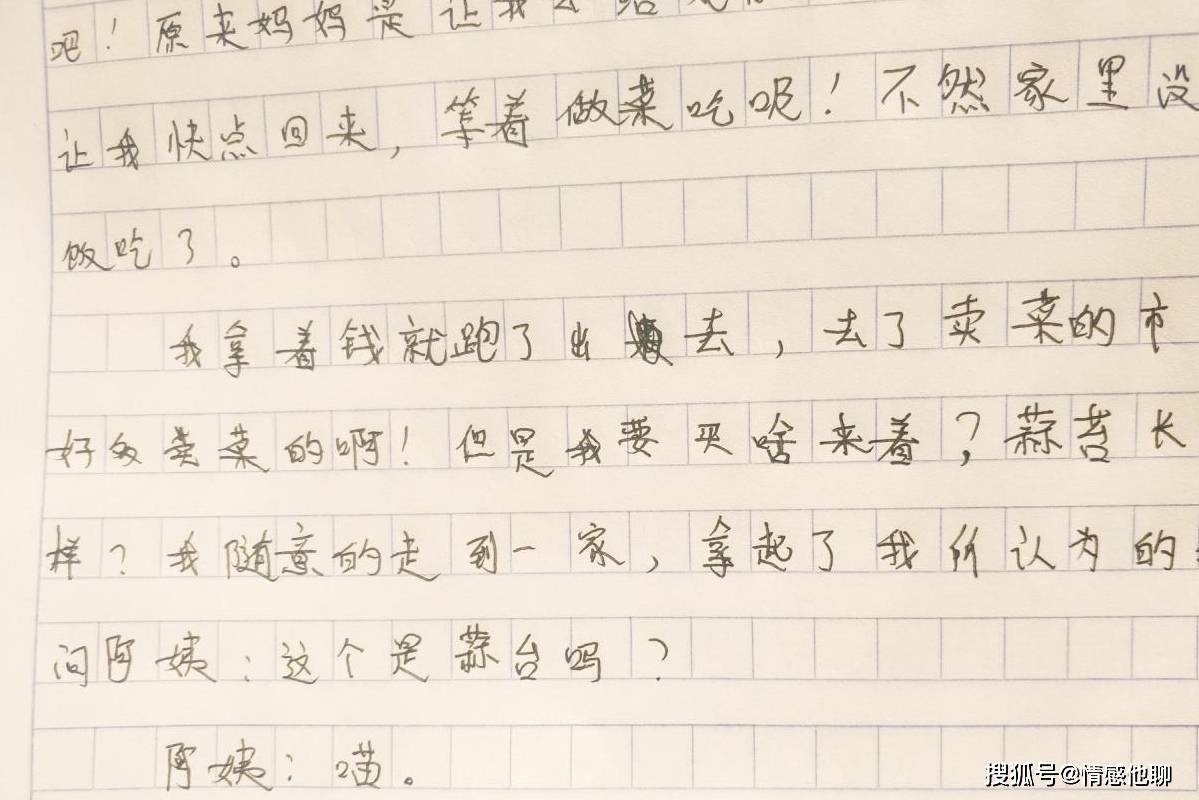 吧！原来妈妈是让我去给
让我快点回来，等着做菜吃呢！不然家里没
饭吃了。
我拿着钱就跑了出去，去了卖菜的市
好多卖菜的啊！但是我要买啥来着？蒜苔长
样？我随意的走到一家，拿起了我所认为的
问阿姨：这个是蒜台吗？
阿姨：喵。
搜狐号@情感他聊